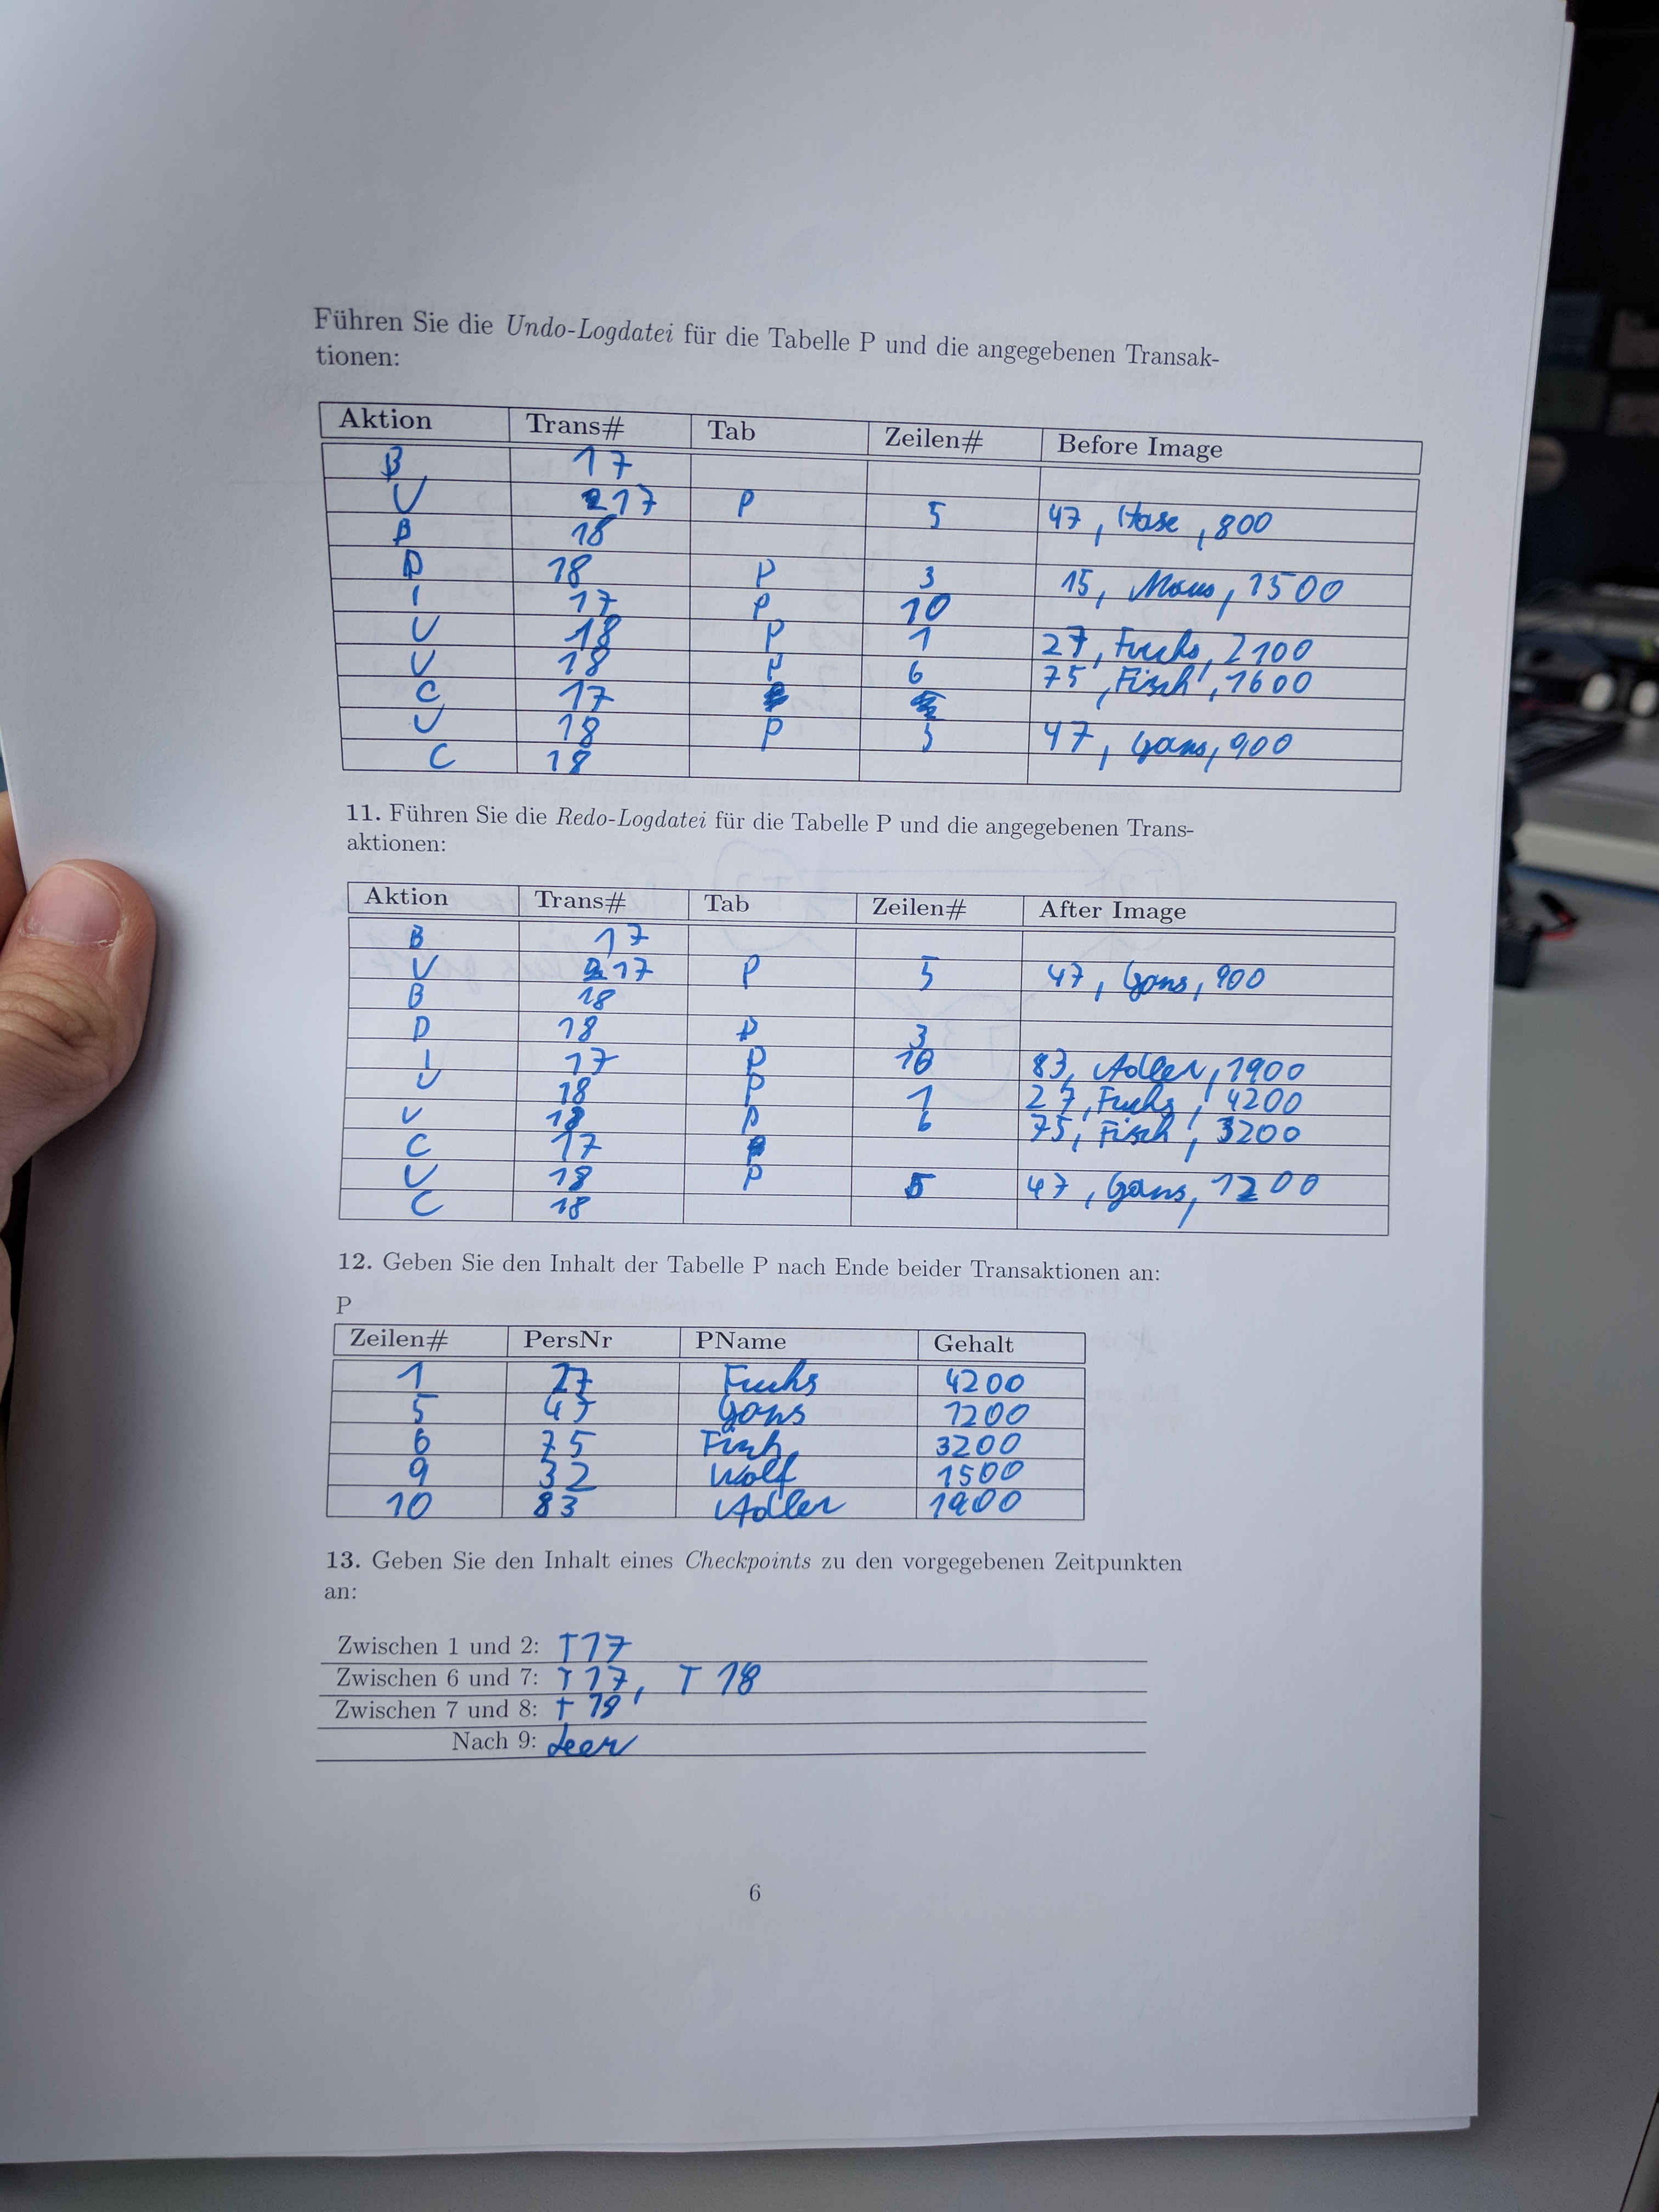 Führen Sie die Undo-Logdatei für die Tabelle P und die angegebenen Transak-
tionen:
Aktion Trans# Tab Zeilen# Before Image
B 17
U 17 P 5 47, Hase, 800
B 18
D 18 P 3 15, Maus, 1500
I 17 P 10
U 18 P 1 27, Fuchs, 2100
U 18 P 6 75, Fisch, 1600
C 17
U 18 P 5 47, Gans, 900
C 18
11. Führen Sie die Redo-Logdatei für die Tabelle P und die angegebenen Trans-
aktionen:
Aktion Trans# Tab Zeilen# After Image
B 17
U 17 P 5 47, Gans, 900
B 18
D 18 P 3
I 17 P 10 83, Adler, 1900
U 18 P 1 27, Fuchs, 4200
U 18 P 6 75, Fisch, 3200
C 17
U 18 P 5 47, Gans, 1200
C 18
12. Geben Sie den Inhalt der Tabelle P nach Ende beider Transaktionen an:
P
Zeilen# PersNr PName Gehalt
1 27 Fuchs 4200
5 47 Gans 1200
6 75 Fisch 3200
9 32 Wolf 1500
10 83 Adler 1900
13. Geben Sie den Inhalt eines Checkpoints zu den vorgegebenen Zeitpunkten
an:
Zwischen 1 und 2: T17
Zwischen 6 und 7: T17, T18
Zwischen 7 und 8: T18
Nach 9: Leer
6